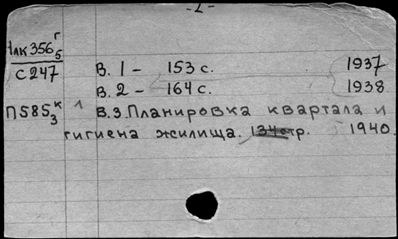 -2-
Члк356 г/5
С247 В. 1 - 153 с. 1937
В. 2 - 164 с. 1938
П585 к/3 В.3. Планировка квартала и
гигиена жилища. 134 стр. 1940.